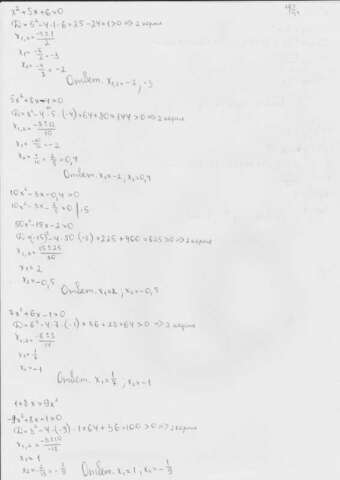 x²+5x+6=0
D=5²-4·1·6=25-24=1>0 => 2 корня
x₁,₂=(-5±1)/2
x₁=-6/2=-3
x₂=-4/2=-2
Ответ. x₁,₂=-2; -3
5x²+8x-4=0
D=8²-4·5·(-4)=64+80=144>0 => 2 корня
x₁,₂=(-8±12)/10
x₁=-20/10=-2
x₂=4/10=2/5=0,4
Ответ. x₁=-2; x₂=0,4
10x²-3x-0,4=0
10x²-3x-2/5=0 |·5
50x²-15x-2=0
D=(-15)²-4·50·(-2)=225+400=625>0 => 2 корня
x₁=2
x₂=-0,5
Ответ. x₁=2, x₂=-0,5
7x²+6x-1=0
D=6²-4·7·(-1)=36+28=64>0 => 2 корня
x₁=1/7
x₂=-1
Ответ. x₁=1/7, x₂=-1
1+8x=9x²
-9x²+8x+1=0
D=8²-4·(-9)·1=64+36=100>0 => 2 корня
x₁,₂=(-8±10)/-18
x₁=1
x₂=2/-18=-1/9 Ответ. x₁=1, x₂=-1/9